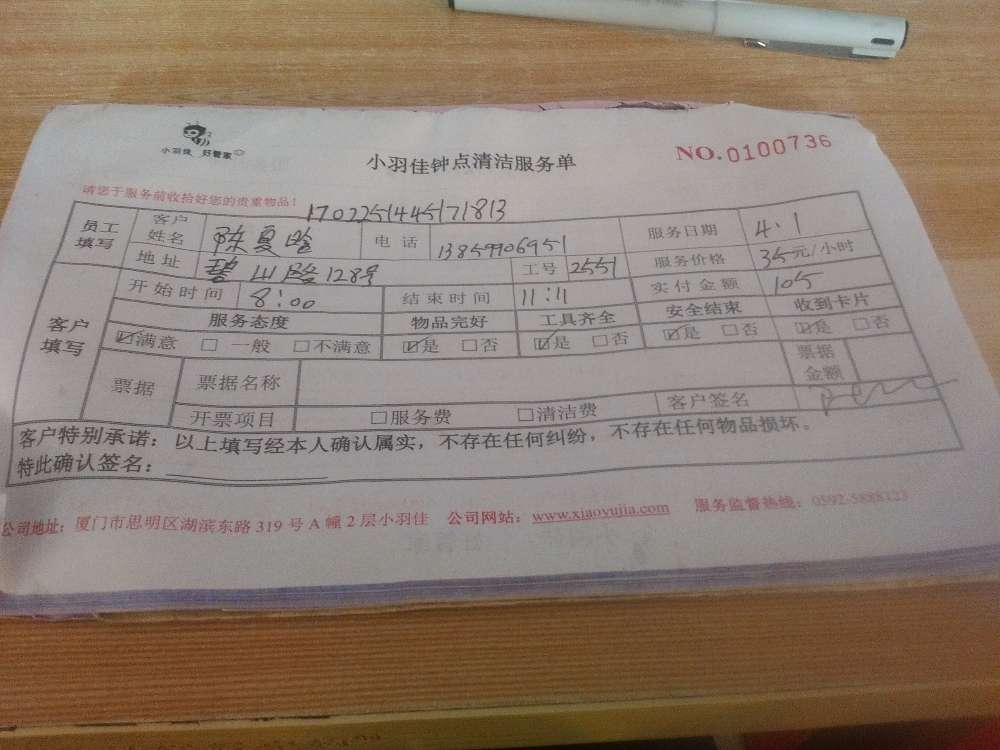 小羽佳 好管家
小羽佳钟点清洁服务单
NO.0100736
请您于服务前收拾好您的贵重物品!
17022514445171813
员工填写 客户姓名 陈夏 电话 13859906951 服务日期 4.1
地址 碧山路128号 工号 2551 服务价格 35元/小时
客户填写 开始时间 8:00 结束时间 11:11 实付金额 105
服务态度 物品完好 工具齐全 安全结束 收到卡片
☑满意 □一般 □不满意 ☑是 □否 ☑是 □否 ☑是 □否 ☑是 □否
票据 票据名称 票据金额
开票项目 □服务费 □清洁费 客户签名
客户特别承诺:以上填写经本人确认属实,不存在任何纠纷,不存在任何物品损坏。
特此确认签名:
公司地址:厦门市思明区湖滨东路319号A幢2层小羽佳 公司网站:www.xiaoyujia.com 服务监督热线:0592-5888123